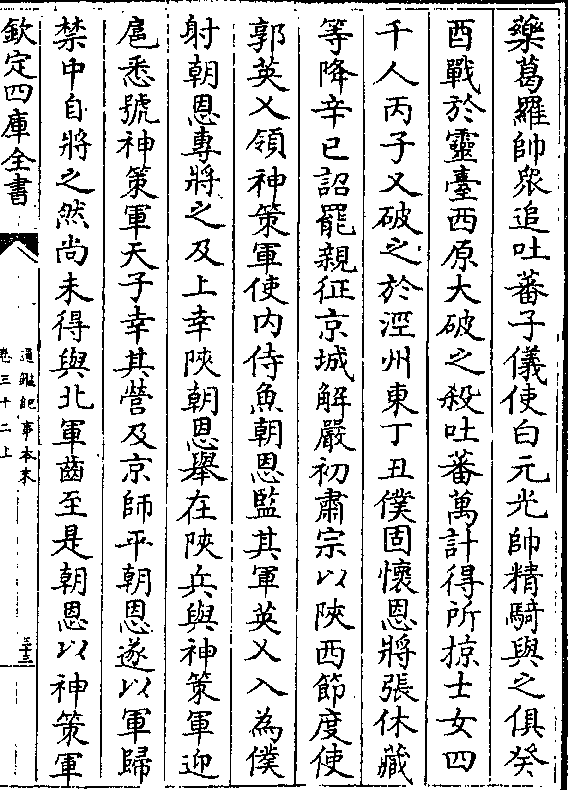 藥葛羅帥衆追吐蕃子儀使白元光帥精騎與之俱癸
酉戰於靈臺西原大破之殺吐蕃萬計得所掠士女四
千人丙子又破之於涇州東丁丑僕固懷恩將張休藏
等降辛已詔罷親征京城解嚴初肅宗以陜西節度使
郭英乂領神策軍使内侍魚朝恩監其軍英乂入為僕
射朝恩專將之及上幸陜朝恩舉在陜兵與神策軍迎
扈悉號神策軍天子幸其營及京師平朝恩遂以軍歸
禁中自將之然尚未得與北軍齒至是朝恩以神策軍
欽定四庫全書
通鑑紀事本末
卷三十二上
三十三